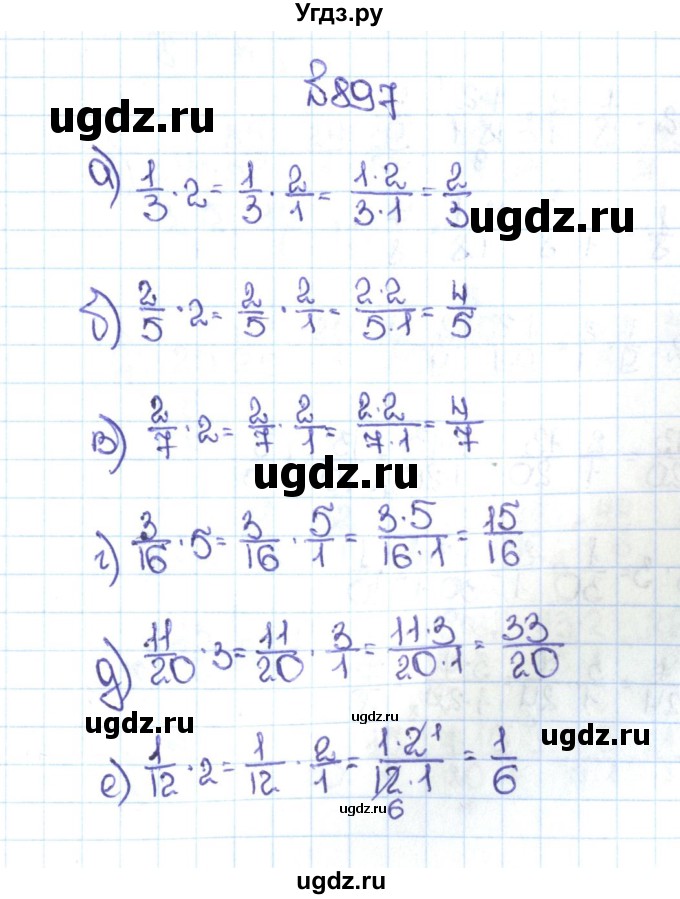 Угдз.ру
№ 897
ugdz.ru
а) 1/3 · 2 = 1/3 · 2/1 = 1·2/3·1 = 2/3
ugdz.ru
б) 2/5 · 2 = 2/5 · 2/1 = 2·2/5·1 = 4/5
в) 2/7 · 2 = 2/7 · 2/1 = 2·2/7·1 = 4/7
ugdz.ru
г) 3/16 · 5 = 3/16 · 5/1 = 3·5/16·1 = 15/16
д) 11/20 · 3 = 11/20 · 3/1 = 11·3/20·1 = 33/20
ugdz.ru
ugdz.ru
ugdz.ru
е) 1/12 · 2 = 1/12 · 2/1 = 1·2 1/12·1 6 = 1/6
ugdz.ru
ugdz.ru